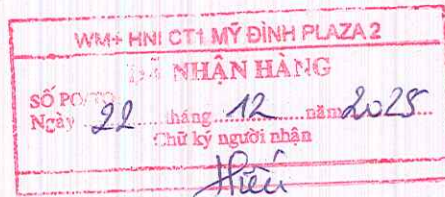 WM+ HNI CT1 MỸ ĐÌNH PLAZA 2
ĐÃ NHẬN HÀNG
SỐ PO/TO
Ngày 22 tháng 12 năm 2025
Chữ ký người nhận
Hiếu